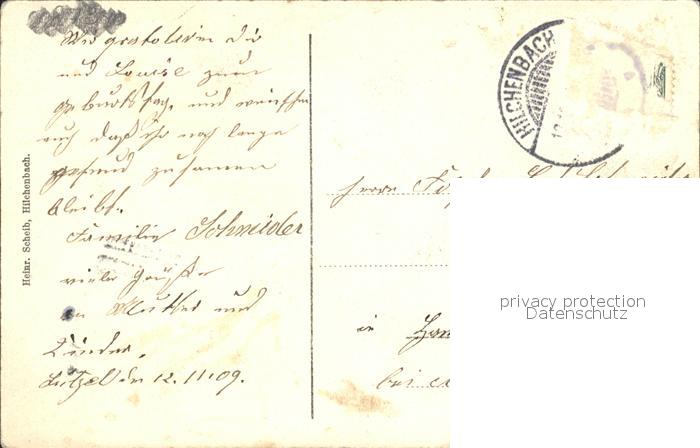 Wir gratulieren dir
und Louise zum
geburtstag, und wünschen
euch daß ihr noch lange
gesund zusamen
bleibt.
Familie Schneider
viele Grüße
an Mutter und
Kinder.
Lützel den 12.11.09.
Heinr. Scheib, Hilchenbach.
HILCHENBACH
Herrn
in
bei
privacy protection
Datenschutz